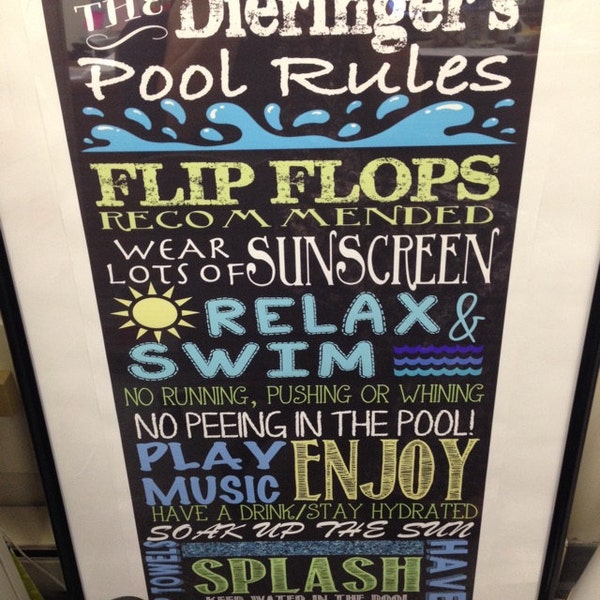 THE Dieringer's
Pool Rules
FLIP FLOPS
RECOMMENDED
WEAR
LOTS OF SUNSCREEN
RELAX &
SWIM
NO RUNNING, PUSHING OR WHINING
NO PEEING IN THE POOL!
PLAY
MUSIC ENJOY
HAVE A DRINK/STAY HYDRATED
SOAK UP THE SUN
TOWELS
SPLASH
HAVE
KEEP WATER IN THE POOL